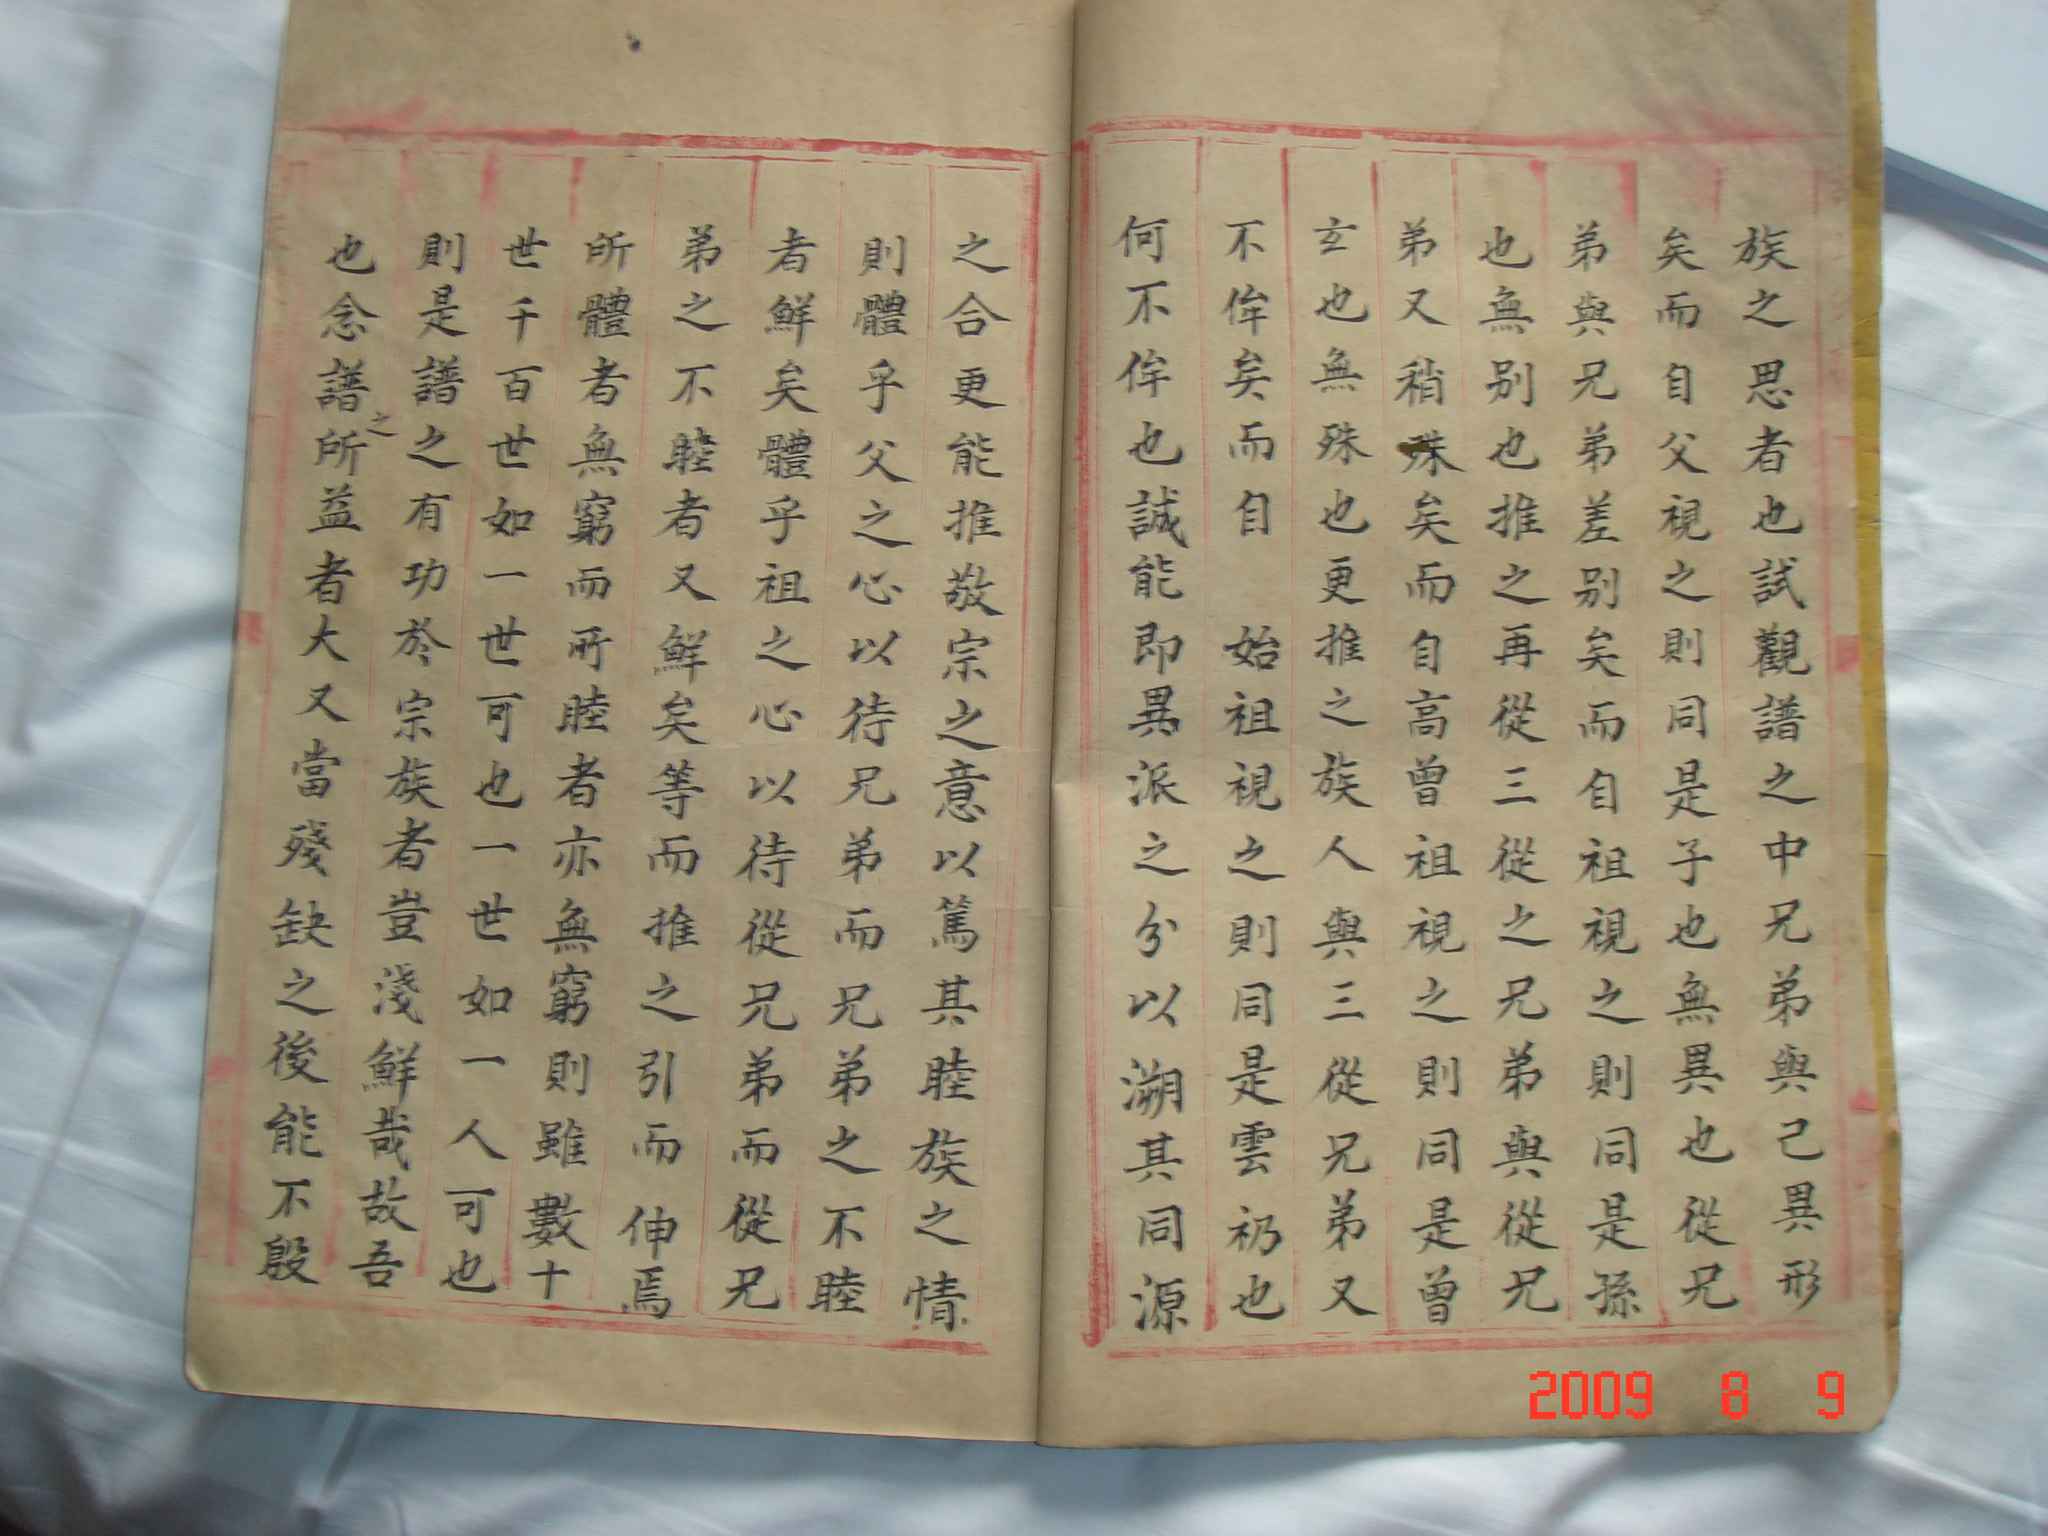 族之思者也試觀譜之中兄弟與己異形
矣而自父視之則同是子也無異也從兄
弟與兄弟差别矣而自祖視之則同是孫
也無别也推之再從三從之兄弟與從兄
弟又稍殊矣而自高曾祖視之則同是曾
玄也無殊也更推之族人與三從兄弟又
不侔矣而自　始祖視之則同是雲礽也
何不侔也誠能即異派之分以溯其同源
之合更能推敬宗之意以篤其睦族之情
則體乎父之心以待兄弟而兄弟之不睦
者鮮矣體乎祖之心以待從兄弟而從兄
弟之不睦者又鮮矣等而推之引而伸焉
所體者無窮而所睦者亦無窮則雖數十
世千百世如一世可也一世如一人可也
則是譜之有功於宗族者豈淺鮮哉故吾
也念譜之所益者大又當殘缺之後能不殷
2009 8 9